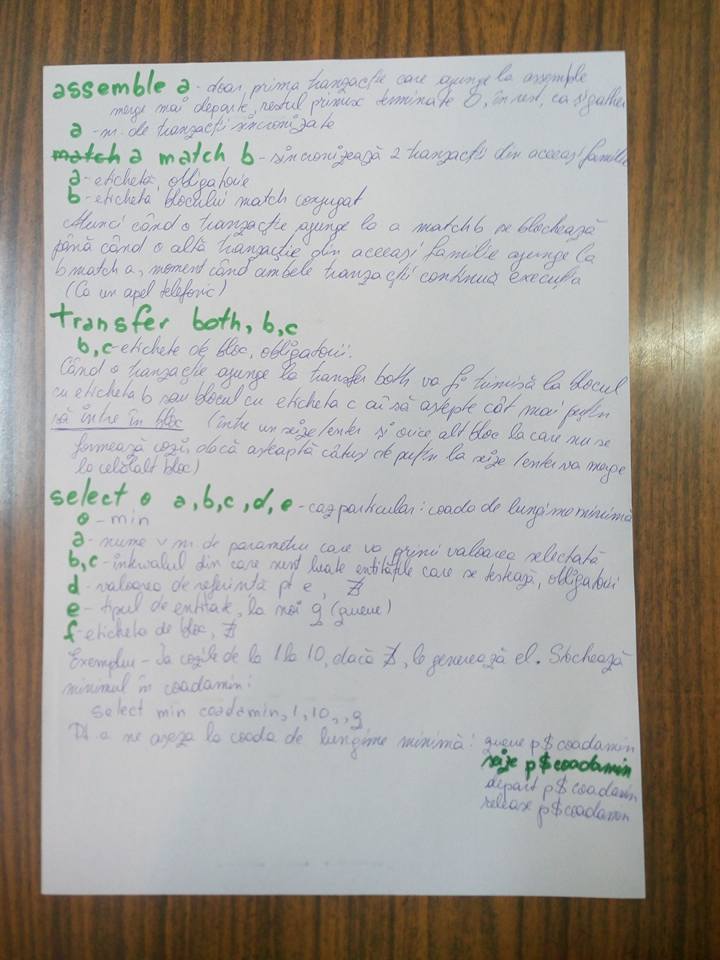 assemble a - doar prima tranzacție care ajunge la assemple
merge mai departe, restul primesc terminate 0, în rest, ca și gather
a - nr. de tranzacții sincronizate
match a match b - sincronizează 2 tranzacții din aceeași familie
a - etichetă, obligatorie
b - eticheta blocului match conjugat
Atunci când o tranzacție ajunge la a match b se blochează
până când o altă tranzacție din aceeași familie ajunge la
b match a, moment când ambele tranzacții continuă execuția
(Ca un apel telefonic)
transfer both, b,c
b,c - etichete de bloc, obligatorii.
Când o tranzacție ajunge la transfer both va fi trimisă la blocul
cu eticheta b sau blocul cu eticheta c aî să aștepte cât mai puțin
să intre în bloc (între un seize/enter și orice alt bloc la care nu se
formează cozi, dacă așteaptă câtuși de puțin la seize/enter va merge
la celălalt bloc)
select o a,b,c,d,e - caz particular: coada de lungime minimă
o - min
a - nume v nr. de parametru care va primi valoarea selectată
b,c - intervalul din care sunt luate entitățile care se testează, obligatorii
d - valoarea de referință pt e, ∄
e - tipul de entitate, la noi q (queue)
f - eticheta de bloc, ∄
Exemplu - Ia cozile de la 1 la 10, dacă ∄, le generează el. Stochează
minimul în coadamin:
select min coadamin,1,10,,q
Pt a ne așeza la coada de lungime minimă: queue p$coadamin
seize p$coadamin
depart p$coadamin
release p$coadamin